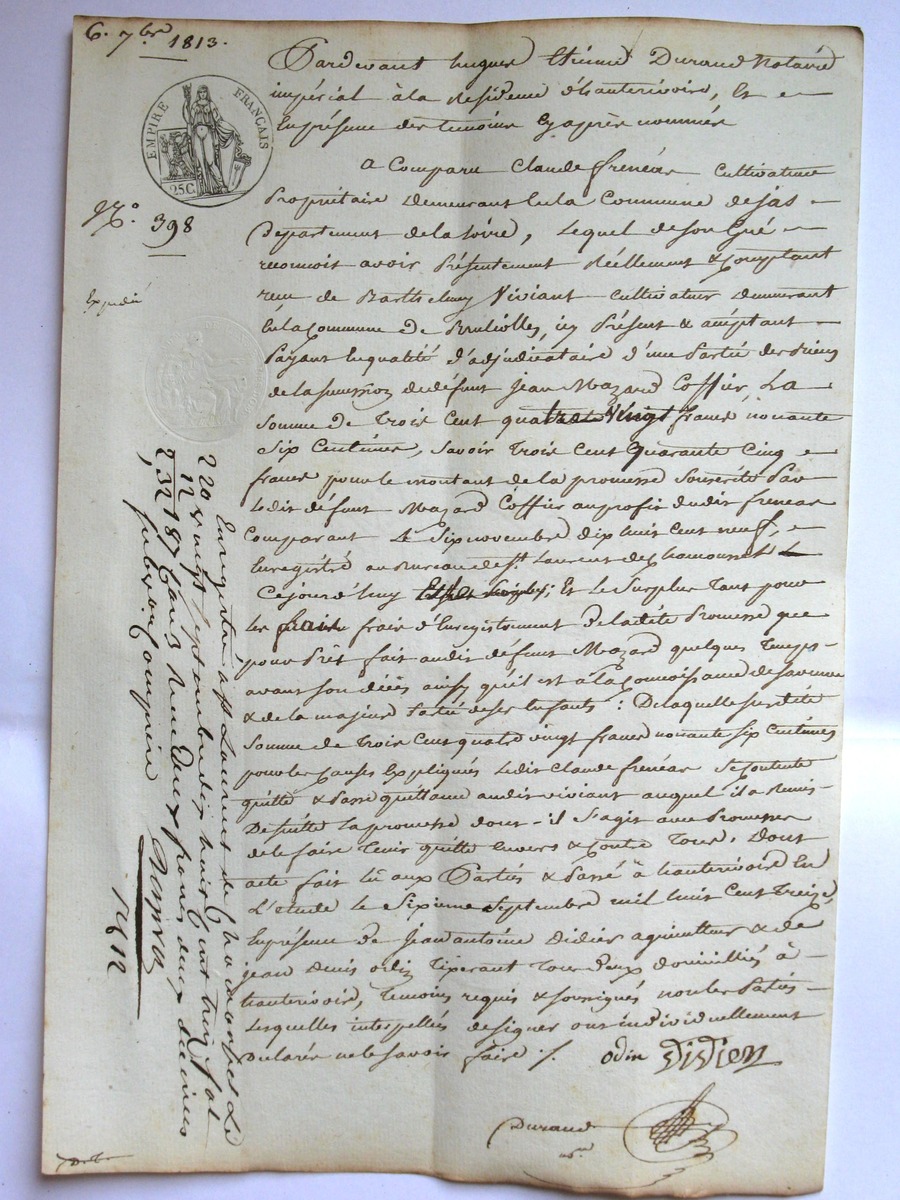 6. 7bre 1813.
EMPIRE FRANÇAIS
25C.
N.o 398
Expédié
Pardevant hugues Etienne Durand Notaire
impérial à la Residence d'hauterivoire, Et
En présence des temoins Cy après nommés
a Comparu Claude freneas Cultivateur
Propriétaire Demeurant En la Commune de jas
Département de la Loire, Lequel de Son Gré
reconnoit avoir Présentement Réellement & Comptant
reçu de Barthelemy Viviant Cultivateur demeurant
En la Commune de Brulioles, icy Présent & acceptant
Payant En qualité d'adjudicataire d'une Partie des Biens
de la succession de défunt jean Mazard Coffier, La
Somme de Trois Cent quatre Vingt francs nonante
Six Centimes, Savoir Trois Cent Quarante Cinq
francs pour le montant de la promesse Souscrite Par
Ledit défunt Mazard Coffier au profit dudit freneas
Comparant Le Six novembre dix huit Cent neuf,
Enregistré au Bureau de St. Laurent de Chamousset Le
Cejourd'huy ; Et Le Surplus Tant pour
Les frais d'Enregistrement De ladite Promesse que
pour Prêt fait audit défunt Mazard quelques Temps
avant Son décès ainsy qu'il est à la Connoissance de sa veuve
& de la majeure Partie de ses Enfants : De laquelle susdite
Somme de Trois Cent quatre vingt francs nonante Six Centimes
pour les Causes Expliquées Ledit Claude freneas Se Contente
quitte & Passe quittance audit viviant auquel il a Remis
De suitte La promesse dont il S'agit avec Promesse
de le faire Tenir quitte Envers & Contre Tous. Dont
acte fait lû aux Parties & Passé à hauterivoire En
L'étude le Sixieme Septembre mil huit Cent Treize,
En présence De jean antoine Didier agriculteur & de
jean Denis odin Tixerant Tous Deux domiciliés à
hauterivoire, Temoins requis & soussignés non les Parties
Lesquelles interpellées de signer ont individuellement
Déclarés ne le Savoir faire ./.
odin Didier
Durand
Nre
Enregistré à St Laurent de Chamousset Le
vingt Septembre dix huit Cent treize fol
220
12
232 187 Reçu Deux francs deux décimes
1812